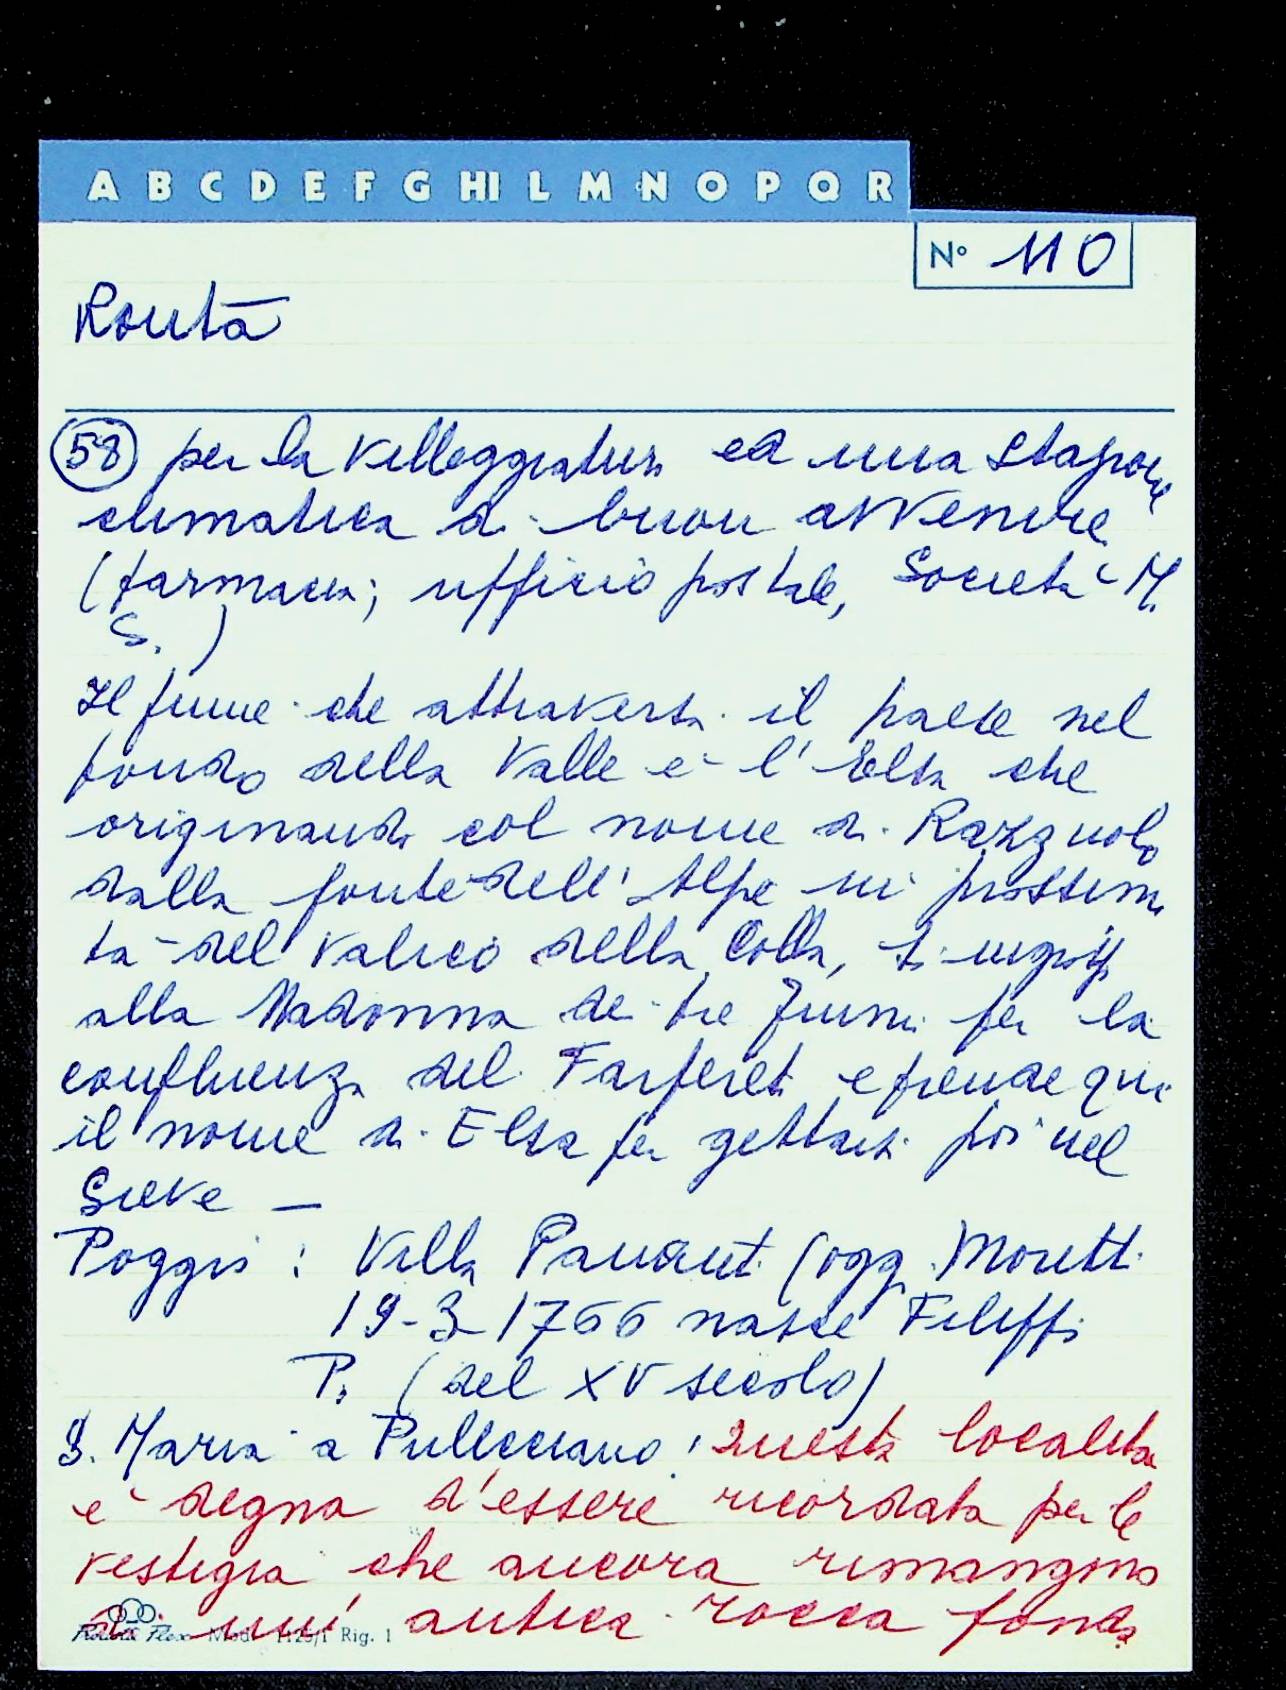 A B C D E F G HI L M N O P Q R
N° 110
Ronta
58 per la villeggiatura ed una stazione
climatica di buon avvenire
(farmacia; ufficio postale, Società M.
S.)
Il fiume che attraversa il paese nel
fondo della Valle è l'Elsa che
originando col nome di Razzuolo
dalla fonte dell'Alpe in prossimi
tà del valico della Colla, si
alla Madonna dei tre fiumi per la
confluenza del Farfereti e prende qui
il nome di Elsa per gettarsi poi nel
Sieve —
Poggio : Villa Pananti (oggi Moretti
19-3-1766 nasce Filippo
P. (del XV secolo)
S. Maria a Pulicciano: questa località
è degna d'essere ricordata per le
vestigia che ancora rimangono
di un' antica rocca fonda
Mod. 1125/1 Rig. 1